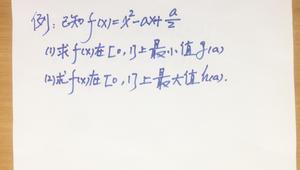 例：已知f(x)=x²-ax+a/2
(1)求f(x)在[0,1]上最小值g(a)
(2)求f(x)在[0,1]上最大值h(a).